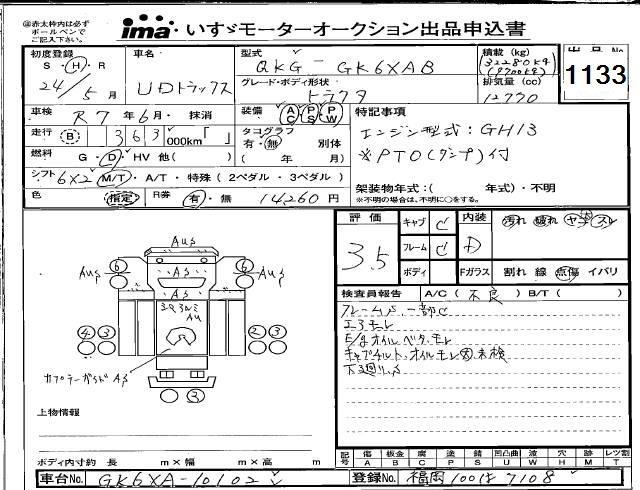 ㊟赤太枠内は必ず
ボールペンで
ご記入下さい。
ima いすゞモーターオークション出品申込書
初度登録 S・H・R 24/5月
車名 UDトラックス
型式 QKG - GK6XAB
グレード・ボディ形状 トラクタ
積載 (kg) (32280kg) (9700kg)
排気量 (cc) 12770
出品No 1133
車検 R7年6月・抹消
装備 AC PS PW
特記事項
走行 B 363,000km「 」
タコグラフ 有・無 別体 ( 年 月)
エンジン型式:GH13
※PTO(ダンプ)付
燃料 G・D・HV 他( )
シフト 6X2 M/T・A/T・特殊 (2ペダル・3ペダル)
架装物年式:( 年式)・不明
※不明の場合は、不明に○をする。
色 指定 R券 有・無 14,260円
評価 3.5
キャブ C
フレーム C
ボディ
内装 D
汚れ 破れ ヤケ スレ
Fガラス 割れ 線 点傷 イバリ
検査員報告 A/C(不良) B/T( )
フレームS、一部C
エアモレ
E/gオイルベタ、モレ
キャブチルト、オイルモレ
未検
下廻りS
AuS
6 AS 6
AuS AuS
AS
4 3 2 3
カプラーガイド AS
3
上物情報
ボディ内寸約 長 m×幅 m×高 m
記号 傷A 板金B 腐C 塗P 錆S 凹凸曲U 波W 穴H メガレM レツ割T
車台No. GK6XA-10102
登録No. 福岡100は7108